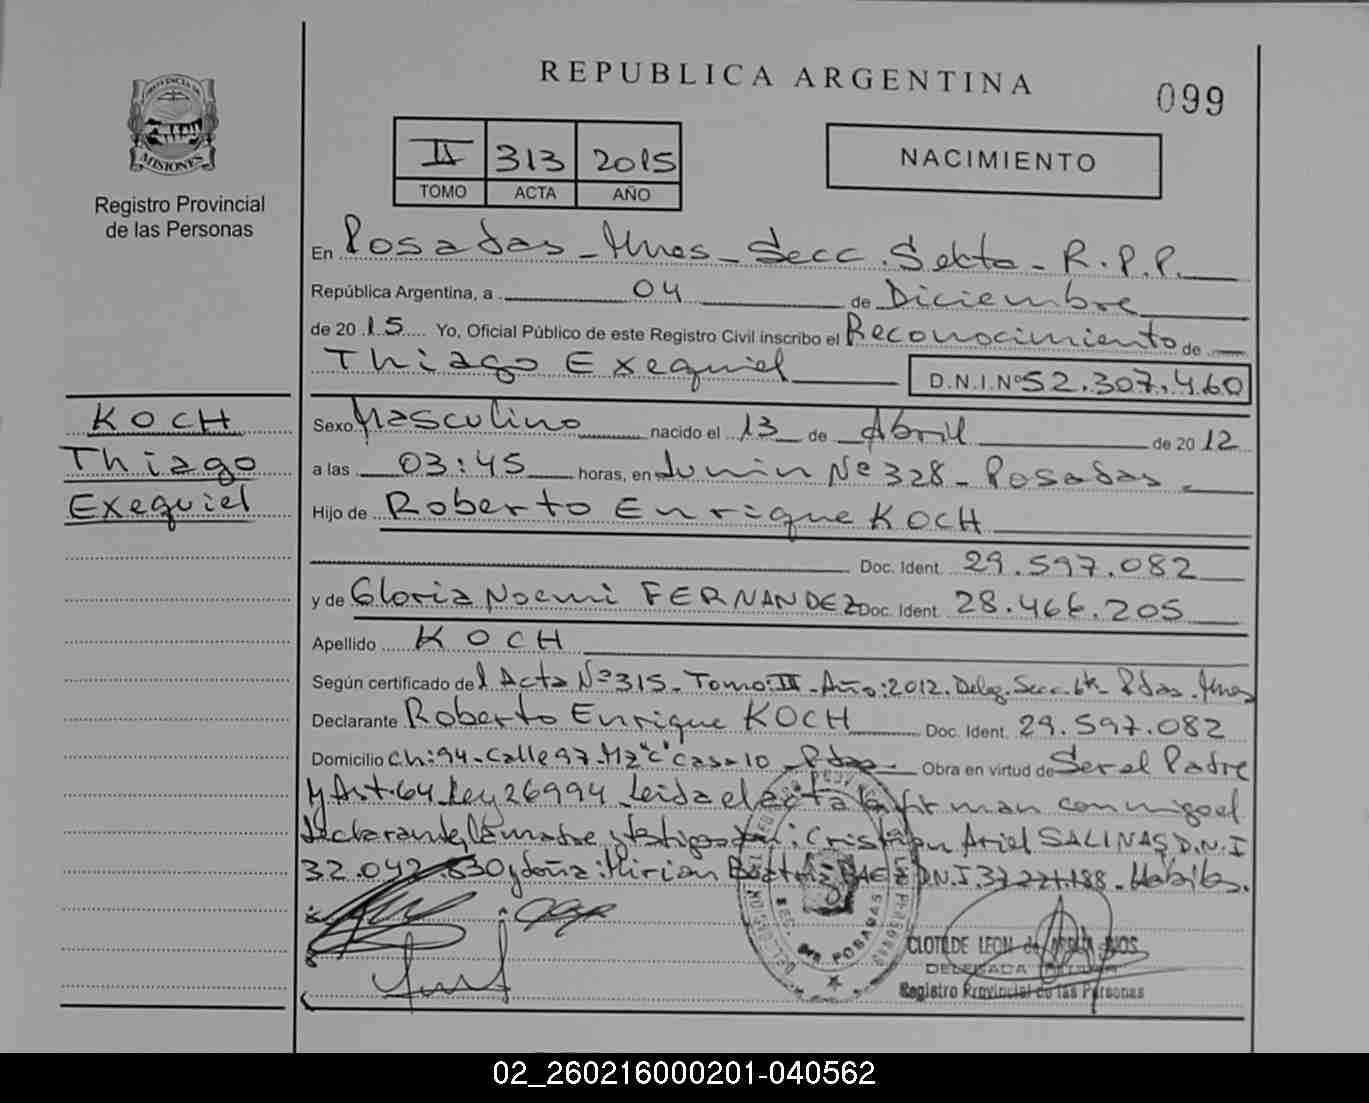 REPUBLICA ARGENTINA
099
PROVINCIA DE
MISIONES
Registro Provincial
de las Personas
II 313 2015
TOMO ACTA AÑO
NACIMIENTO
En Posadas - Mnes - Secc. Sexta - R.P.P.
República Argentina, a 04 de Diciembre
de 2015 Yo, Oficial Público de este Registro Civil inscribo el Reconocimiento de
Thiago Exequiel
D.N.I.Nº 52.307.460
KOCH
Thiago
Exequiel
Sexo Masculino nacido el 13 de Abril de 2012
a las 03:45 horas, en Junin Nº 328 - Posadas
Hijo de Roberto Enrique KOCH
Doc. Ident. 29.597.082
y de Gloria Noemi FERNANDEZ Doc. Ident. 28.466.205
Apellido KOCH
Según certificado del Acta Nº 315 - Tomo: II - Año: 2012. Deleg. Secc. 6ta Pdas. Mnes
Declarante Roberto Enrique KOCH Doc. Ident. 29.597.082
Domicilio Ch: 94 - Calle 97 - Mz "C" Casa 10 - Pdas - Obra en virtud de Ser el Padre
y Art. 64 Ley 26994 - Leida el acta la firman conmigo el
declarante, la madre y testigos: Cristian Ariel SALINAS D.N.I
32.042.830 y doña: Mirian Beatriz BAEZ D.N.I. 37.221.188 - Habiles.
SEC. 6ta POSADAS
CLOTILDE LEON de
DELEGADA
Registro Provincial de las Personas
02_260216000201-040562